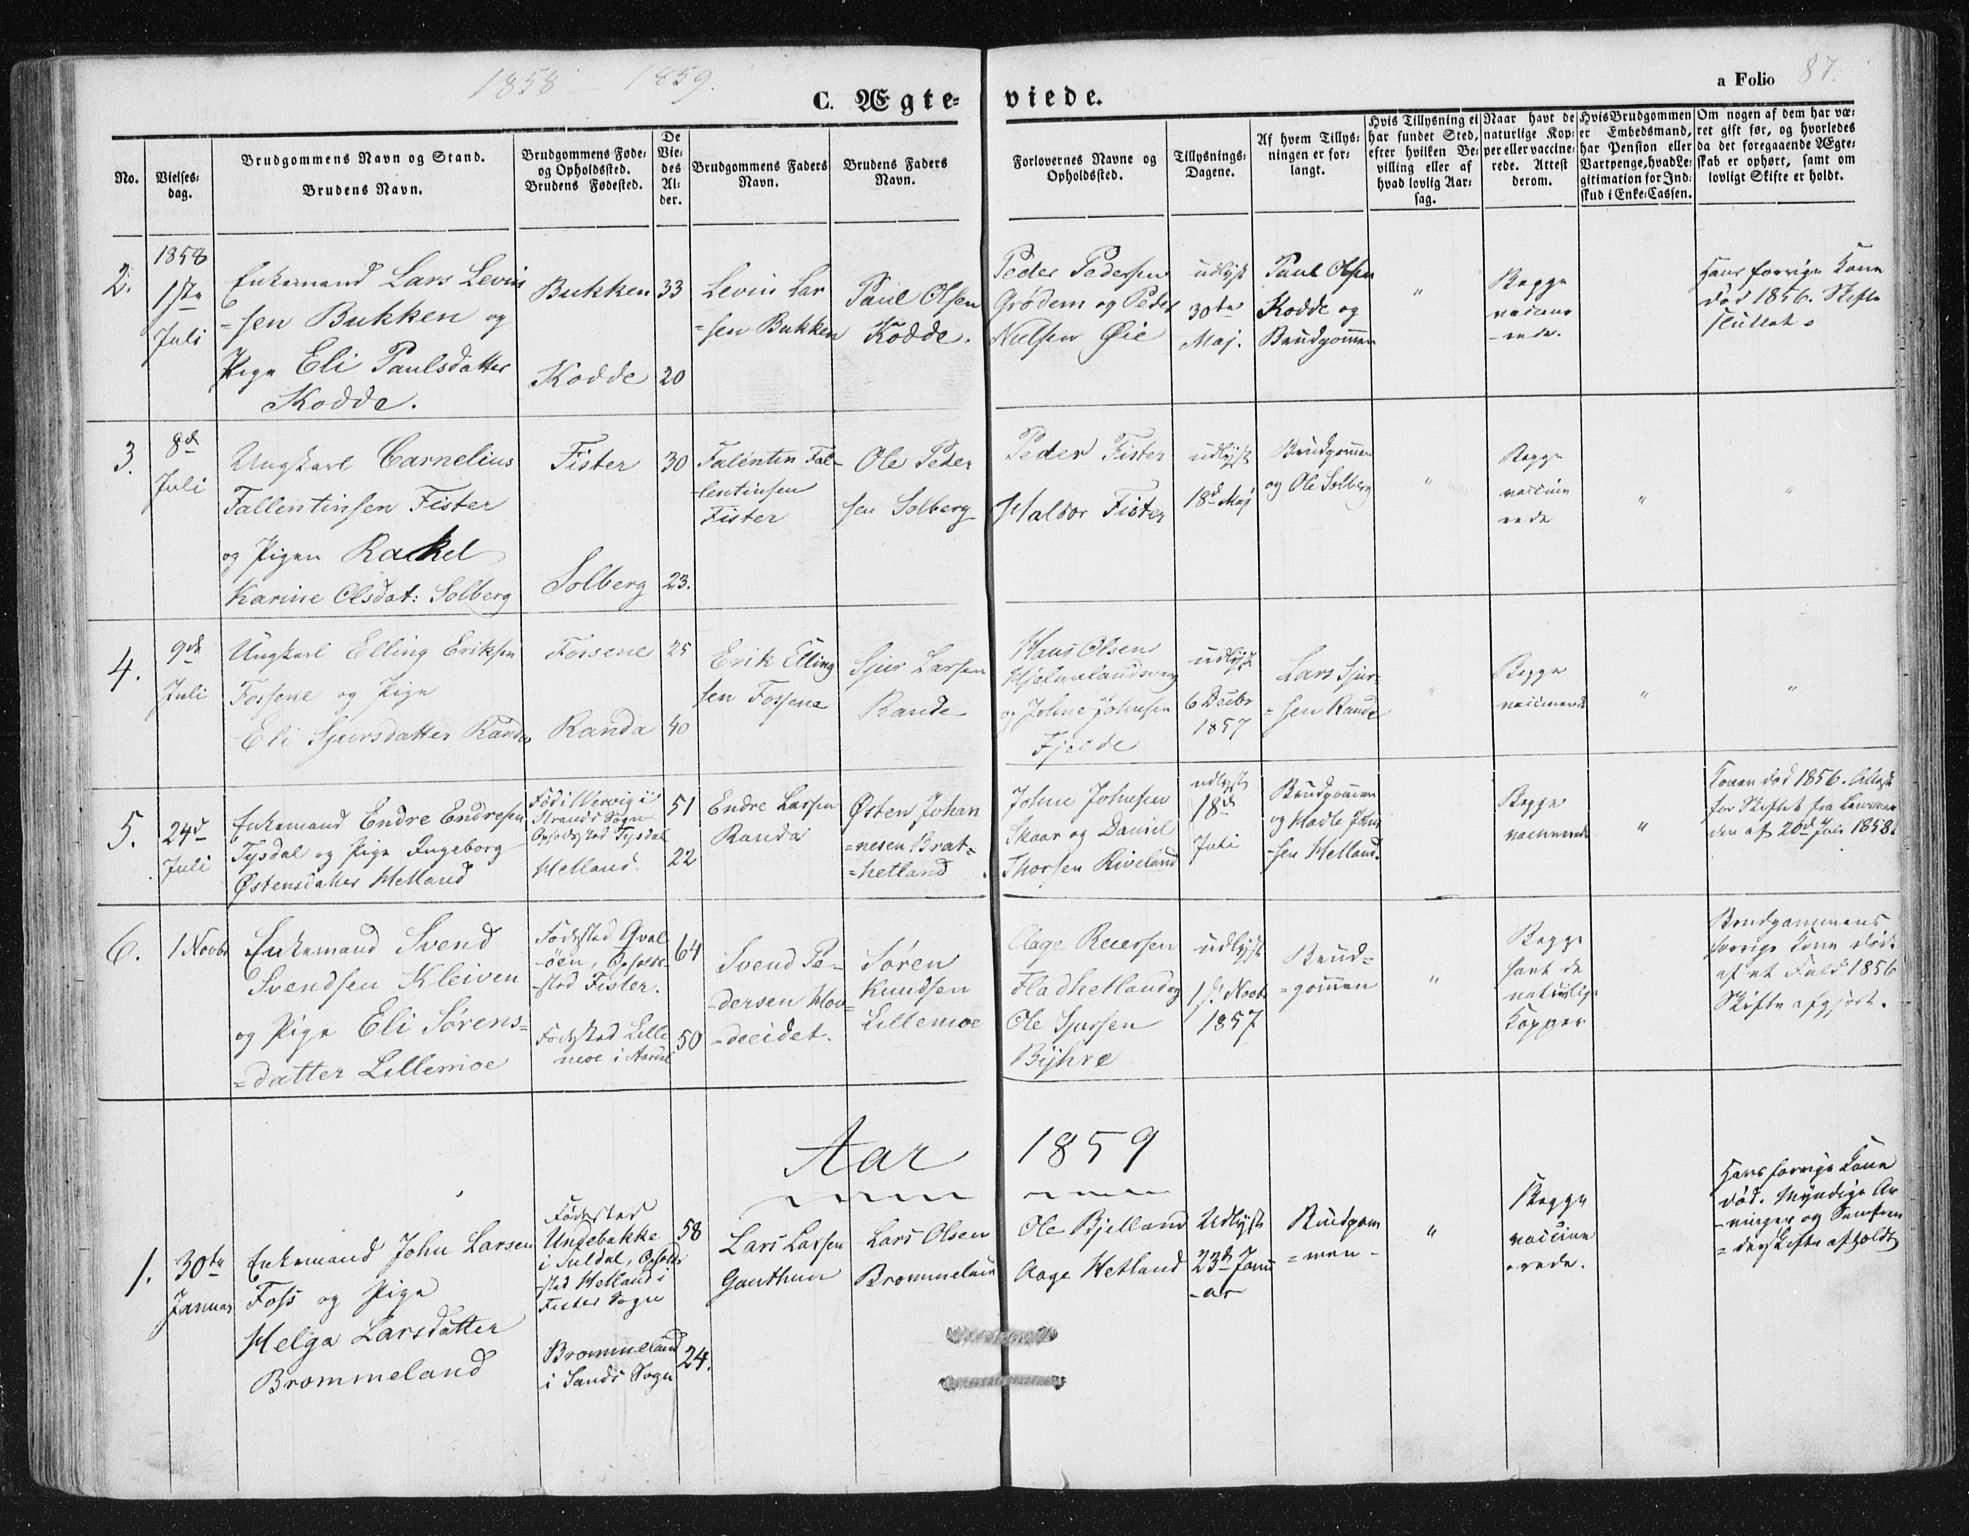 1858 – 1859.
C. Ægte- viede.
a Folio 87.
No.
Vielses-
dag.
Brudgommens Navn og Stand.
Brudens Navn.
Brudgommens Føde-
og Opholdssted.
Brudens Fødested.
De
Vie-
des
Al-
der.
Brudgommens Faders
Navn.
Brudens Faders
Navn.
Forlovernes Navne og
Opholdssted.
Tillysnings-
Dagene.
Af hvem Tillys-
ningen er for-
langt.
Hvis Tillysning ei
har fundet Sted,
efter hvilken Be-
villing eller af
hvad lovlig Aar-
sag.
Naar havt de
naturlige Kop-
per eller vaccine-
rede. Attest
derom.
Hvis Brudgommen
er Embedsmand,
har Pension eller
Vartpenge, hvad Le-
gitimation for Ind-
skud i Enke-Cassen.
Om nogen af dem har væ-
ret gift før, og hvorledes
da det foregaaende Ægte-
skab er ophørt, samt om
lovligt Skifte er holdt.
2.
1858
1ste
Juli
Enkemand Lars Levin
=sen Bukken og
Pige Eli Paulsdatter
Kodde.
Bukken
Kodde
33
20
Levin Lar
=sen Bukken
Paul Olsen
Kodde.
Peder Pedersen
Grødem og Peder
Nielsen Øie
udlyst
30te
Maj.
Paul Olsen
Kodde og
Brudgommen
"
Begge
vaccine
-rede.
Hans forrige Kone
død 1856. Skifte
sluttet.
3.
8de
Juli
Ungkarl Carnelius
Fallentinsen Fister
og Pigen Rackel
Karine Olsdat: Solberg
Fister
Solberg
30
23.
Falentin Fal-
-lentinsen
Fister
Ole Peder
sen Solberg
Peder Fister
Haldor Fister
udlyst
18de Maj
Brudgommen
og Ole Solberg
"
Begge
vaccine
rede
"
"
4.
9de
Juli
Ungkarl Elling Eriksen
Fossene og Pige
Eli Sjursdatter Randa
Fossene
Randa
25
40
Erik Elling
sen Fossene
Sjur Larsen
Rande
Hans Olsen
Hjelmelandsvag
og Johne Johnsen
Fjelde
udlyst
6 Decbr
1857
Lars Sjur-
=sen Rande
"
Begge
vaccinerede
"
"
5.
24de
Juli
Enkemand Endre Endresen
Tysdal og Pige Ingeborg
Østensdatter Hetland
Fød i Vervig i
Strands Sogn
Opholdssted Tysdal
Hetland.
51
22
Endre Larsen
Randa
Østen Johan
=nesen Brat=
=hetland
Johne Johnsen
Skaar og Daniel
Thorsen Riveland
udlyst
18de
Juli
Brudgommen
og Hadle John
-sen Hetland.
Begge
vaccinerede
"
Konen død 1856. Attest
for Skiftet fra Lensman
den af 20de Juni 1858.
6.
1 Novbr
Enkemand Svend
Svendsen Kleiven
og Pige Eli Sørens=
=datter Lillemoe
Fødested Hval
-øen, Opholds-
-sted Fister.
Fødested Lille
moe i Aardal
64
50
Svend Pe-
-dersen Hov-
-deeidet.
Søren
Knudsen
Lillemoe
Aage Reiersen
Fladhetland og
Ole Sjursen
Byhre
udlyst
1ste Novbr
1857
Brud=
=gommen
"
Begge
havt de
naturlige
Kopper
Brudgommens
forrige Kone død
af et Fald 1856
Skifte afgjort.
Aar 1859
1.
30te
Januar
Enkemand John Larsen
Foss og Pige
Helga Larsdatter
Brommeland
Fødested
Undebakke
i Suldal, Opholds
-sted Hetland i
Fister Sogn
Brommeland
i Sands Sogn
58
24.
Lars Larsen
Gauthun
Lars Olsen
Brommeland
Ole Bjelland
Aage Hetland
Udlyst
23de Janu
-ar
Brudgom
=men -
"
Begge
vaccine
-rede.
Hans forrige Kone
død. Myndige Ar
-vinger og Samfræn
=deskifte afholdt